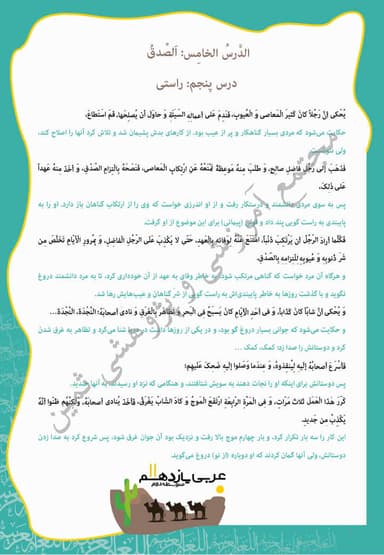 الدَّرسُ الخامِس: اَلصِّدقُ
درس پنجم: راستی
یُحکی أنَّ رَجُلاً کانَ کَثیرَ المَعاصي وَ العُیوبِ، فَنَدِمَ عَلی أعمالِهِ السَّیِّئَةِ وَ حاوَلَ أن یُصلِحَها، فَمَا استَطاعَ،
حکایت می‌شود که مردی بسیار گناهکار و پر از عیب بود. از کارهای بدش پشیمان شد و تلاش کرد آنها را اصلاح کند،
ولی نتوانست.
فَذَهَبَ إلی رَجُلٍ فاضِلٍ صالِحٍ، وَ طَلَبَ مِنهُ مَوعِظَةً تَمنَعُهُ عَنِ ارتِکابِ المَعاصي، فَنَصَحَهُ بِالتِزامِ الصِّدقِ، وَ أخَذَ مِنهُ عَهداً
عَلی ذلِکَ.
پس به سوی مردی دانشمند و درستکار رفت و از او اندرزی خواست که وی را از ارتکاب گناهان باز دارد. او را به
پایبندی به راست گویی پند داد و قول (پیمانی) برای این موضوع از او گرفت.
فَکُلَّما أرادَ الرَّجُلُ أن یَرتَکِبَ ذَنباً، اِمتَنَعَ عَنهُ لِوَفائِهِ بِالعَهدِ، حَتّی لا یَکذِبَ عَلَی الرَّجُلِ الفاضِلِ، وَ بِمُرورِ الأیّامِ تَخَلَّصَ مِن
شَرِّ ذُنوبِهِ وَ عُیوبِهِ لِالتِزامِهِ بِالصِّدقِ.
و هرگاه آن مرد خواست که گناهی مرتکب شود، به خاطر وفای به عهد از آن خودداری کرد، تا به مرد دانشمند دروغ
نگوید و با گذشت روزها به خاطر پایبندی‌اش به راست گویی از شر گناهان و عیب‌هایش رها شد.
وَ یُحکی أنَّ شابّاً کانَ کَذّاباً، وَ في أحَدِ الأیّامِ کانَ یَسبَحُ في البَحرِ وَ تَظاهَرَ بِالغَرَقِ وَ نادی أصحابَهُ: النَّجدَة، النَّجدَة...
و حکایت می‌شود که جوانی بسیار دروغ گو بود، و در یکی از روزها داشت در دریا شنا می‌کرد و تظاهر به غرق شدن
کرد و دوستانش را صدا زد: کمک، کمک ...
فَأسرَعَ أصحابُهُ إلَیهِ لِیُنقِذوهُ، وَ عِندَما وَصَلوا إلَیهِ ضَحِکَ عَلَیهِم؛
پس دوستانش برای اینکه او را نجات دهند به سویش شتافتند، و هنگامی که نزد او رسیدند به آنها خندید.
کَرَّرَ هذَا العَمَلَ ثَلاثَ مَرّاتٍ، وَ في المَرَّةِ الرّابِعَةِ ارتَفَعَ المَوجُ وَ کادَ الشّابُّ یَغرَقُ، فَأخَذَ یُنادي أصحابَهُ، وَلکِنَّهُم ظَنّوا أنَّهُ
یَکذِبُ مِن جَدیدٍ.
این کار را سه بار تکرار کرد، و بار چهارم موج بالا رفت و نزدیک بود آن جوان غرق شود، پس شروع کرد به صدا زدن
دوستانش، ولی آنها گمان کردند که او دوباره (از نو) دروغ می‌گوید.
عربی یازدهم